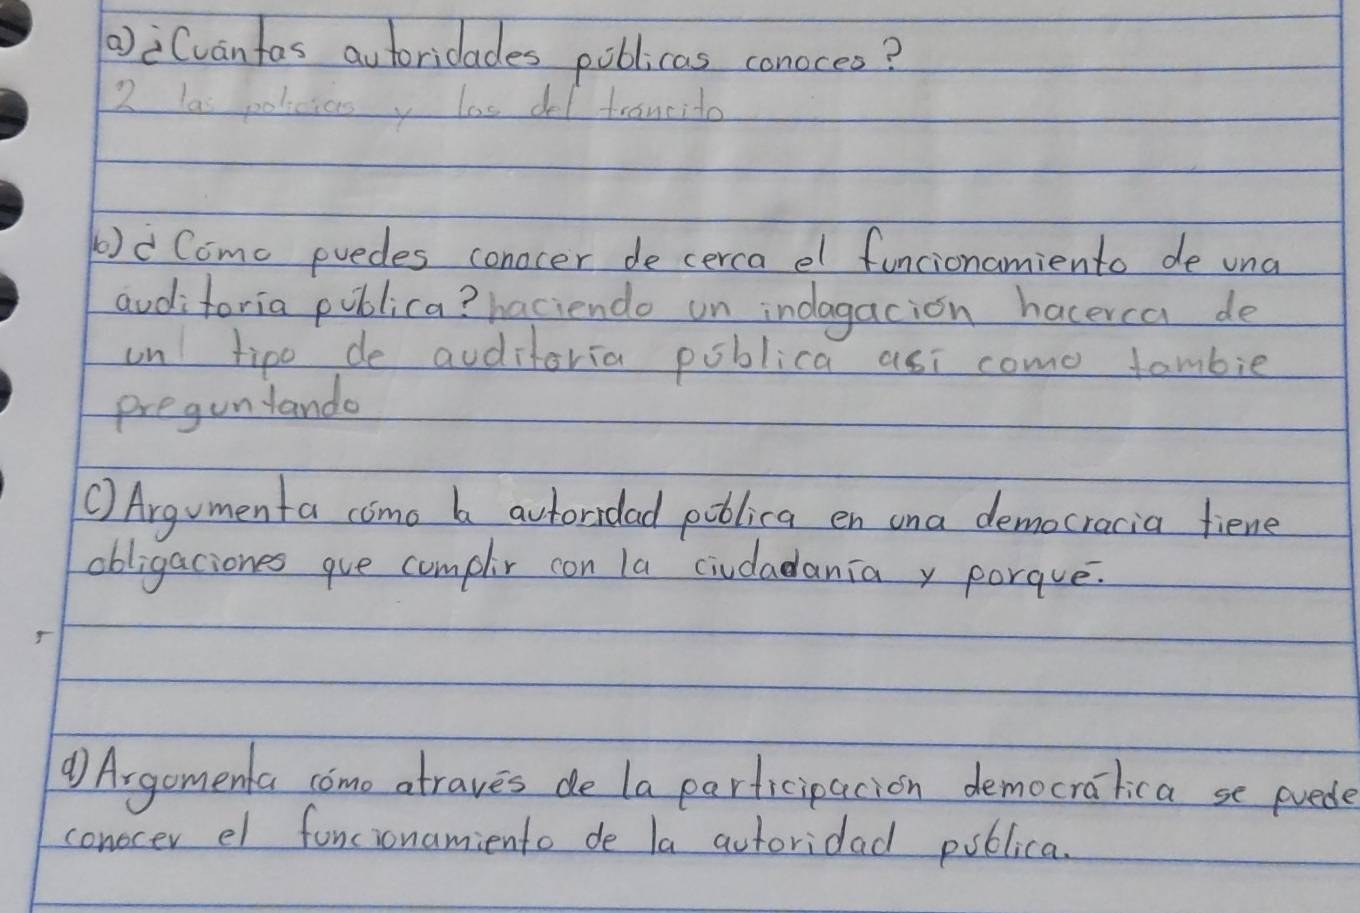 a) ¿Cuántas autoridades públicas conoces?
2 las policias y los del trancito
b) ¿Cómo puedes conocer de cerca el funcionamiento de una
auditoría pública? haciendo un indagación hacerca de
un tipo de auditoría pública así como tambie
preguntando
c) Argumenta cómo la autoridad pública en una democracia tiene
obligaciones que cumplir con la ciudadanía y porqué.
d) Argomenta cómo através de la participación democrática se puede
conocer el funcionamiento de la autoridad pública.